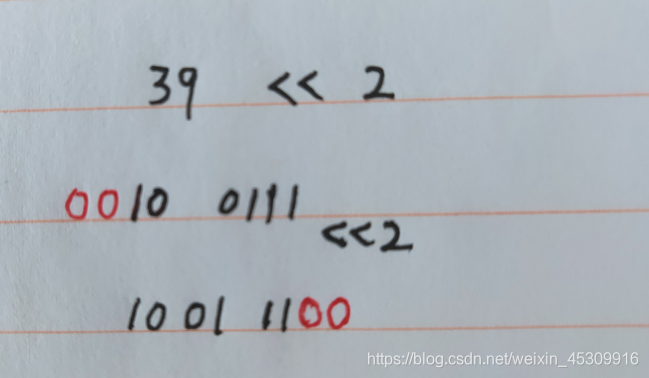 39 << 2
0010 0111
<<2
1001 1100
https://blog.csdn.net/weixin_45309916